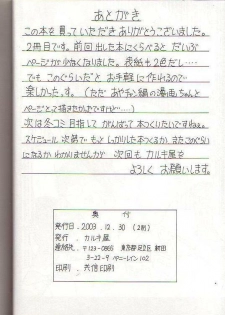 あとがき
この本を買っていただきありがとうございました。
2冊目です。前回出した本にくらべると だいぶ
ページが少なくなりました。表紙も2色だし…
でも このぐらいだと お手軽に作れるので
楽しかったす。(ただ あやチン編の漫画ちゃんと
ページとって描きたかったですけど…)
次は冬コミ目指して がんばって本つくりたいですねぇ。
スケジュール次第で もっとしっかりした本つくるか またこのぐらい
になるか わかりませんが 次回も カルキ屋を
よろしく お願いします。
奥付
発行日・2003.12.30 (2刷)
発行・カルキ屋
連絡先・〒123-0865 東京都足立区新田
3-22-9 ペニーレイン102
印刷・共信印刷